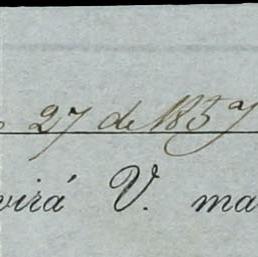 27 de 1857
virá V. ma